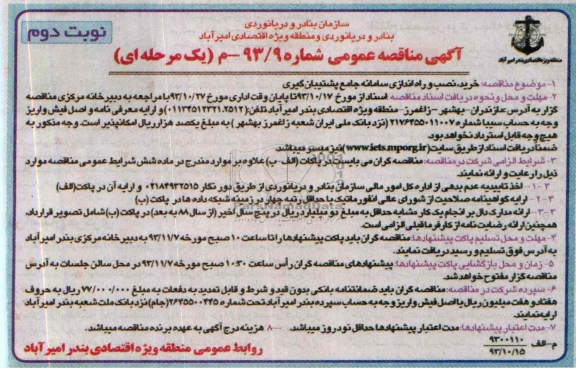 سازمان بنادر و دریانوردی
بنادر و دریانوردی و منطقه ویژه اقتصادی امیرآباد
نوبت دوم
آگهی مناقصه عمومی شماره ۹۳/۹-م (یک مرحله ای)
۱- موضوع مناقصه: خرید، نصب و راه اندازی سامانه جامع پشتیبان گیری
۲- مهلت و محل و نحوه دریافت اسناد مناقصه: اسناد از مورخ ۹۳/۱۰/۱۷ تا پایان وقت اداری مورخ ۹۳/۱۰/۲۷ با مراجعه به دبیرخانه مرکزی مناقصه
گزار به آدرس مازندران-بهشهر-زاغمرز-منطقه ویژه اقتصادی بندر امیرآباد تلفن: (۰۱۱۳۴۵۱۲۳۲۱-۲۵۱۲) و ارایه معرفی نامه و اصل فیش واریز
وجه به حساب سیبا شماره ۲۱۷۶۴۵۵۰۱۱۰۰۷ (نزد بانک ملی ایران شعبه زاغمرز بهشهر) به مبلغ یکصد هزار ریال امکانپذیر است. وجه مذکور به
هیچ وجه قابل استرداد نخواهد بود.
ضمنا دریافت اسناد از طریق سایت (www.iets.mporg.ir) نیز میسر میباشد
۳- شرایط الزامی شرکت در مناقصه: مناقصه گران می بایست در پاکات (الف-ب) علاوه بر موارد مندرج در ماده شش شرایط عمومی مناقصه موارد
ذیل را رعایت و ارائه نمایند.
۳-۱- اخذ تاییدیه عدم بدهی از اداره کل امور مالی سازمان بنادر و دریانوردی از طریق دور نگار ۰۲۱۸۴۹۳۲۵۱۵ و ارایه آن در پاکت (الف)
۳-۲- ارایه گواهینامه صلاحیت از شورای عالی انفورماتیک با حداقل رتبه چهار در زمینه شبکه داده ها در پاکت (ب)
۳-۳- ارائه مدارک دال بر انجام یک کار مشابه حداقل به مبلغ دو میلیارد ریال در پنج سال اخیر (از سال ۸۸ به بعد) در پاکت (ب) شامل تصویر قرارداد.
همچنین ارائه رضایت نامه از کارفرما قبلی الزامی است.
۴- مهلت و محل تسلیم پاکت پیشنهادها: مناقصه گران باید پاکت پیشنهادها را تا ساعت ۱۰ صبح مورخه ۹۳/۱۱/۷ به دبیرخانه مرکزی بندر امیرآباد
به آدرس فوق تسلیم و رسید دریافت نمایند.
۵- زمان و محل بازگشایی پاکت پیشنهادها: پیشنهادهای مناقصه گران رأس ساعت ۱۰:۳۰ صبح مورخه ۹۳/۱۱/۷ در محل سالن جلسات به آدرس
مناقصه گزار مفتوح خواهد شد.
۶- سپرده شرکت در مناقصه: مناقصه گران باید ضمانتنامه بانکی بدون قید و شرط و قابل تمدید به دفعات به مبلغ ۷۷/۰۰۰/۰۰۰ ریال به حروف
هفتاد و هفت میلیون ریال یا اصل فیش واریز وجه به حساب سپرده بندر امیرآباد تحت شماره ۲۶۴۵۵۰۰۴۴۵ (جام) نزد بانک ملت شعبه بندر امیرآباد
ارایه نمایند.
۷- مدت اعتبار پیشنهادها: مدت اعتبار پیشنهادها حداقل نود روز میباشد. ۸- هزینه درج آگهی به عهده برنده مناقصه میباشد.
م-الف ۹۳۰۰۱۱۰
۹۳/۱۰/۱۵
روابط عمومی منطقه ویژه اقتصادی بندر امیرآباد